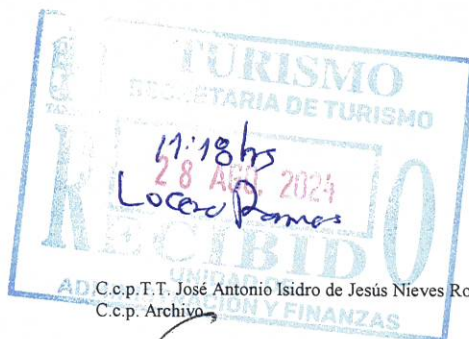 TURISMO
SECRETARIA DE TURISMO
11:18 hrs
28 AGO. 2024
RECIBIDO
UNIDAD DE
ADMINISTRACIÓN Y FINANZAS
C.c.p.T.T. José Antonio Isidro de Jesús Nieves Ro
C.c.p. Archivo